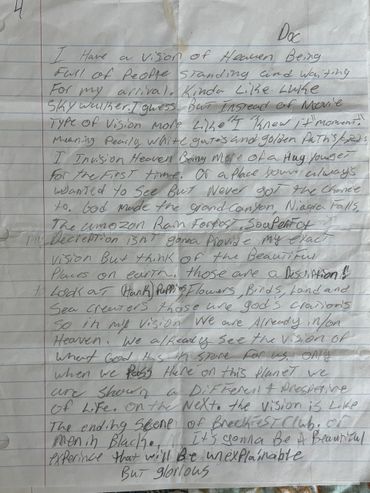 4
Doc
I Have a vision of Heaven Being
Full of People standing and waiting
For my arrival. Kinda Like Lluke
Skywalker. I guess. But instead of Movie
Type of vision more Like "I knew it" moment
meaning Pearly white gates and golden Paths
I Invision Heaven Being More of a Hug yourself
For the First time. Or a place you've always
wanted to see But Never got the chance
to. God made the grand canyon, Niagra Falls,
The amozon Rain Forest,
Decreption isn't gonna Provide my exact
vision But think of the Beautiful
Places on earth. those are a Description!
Look at Flowers, Birds, Land and
Sea creaters those are god's craitions
So in my vision we are Already in/on
Heaven. We already see the vision of
what God Has in store For us. Only
when we Pass there on this Planet we
are shown a Different Prespetive
of Life. on the Next. the vision is Like
The ending scene of Breckfest club, or
Men in Black. It's gonna Be A Beautiful
experince that will Be unexplainable
But glorious